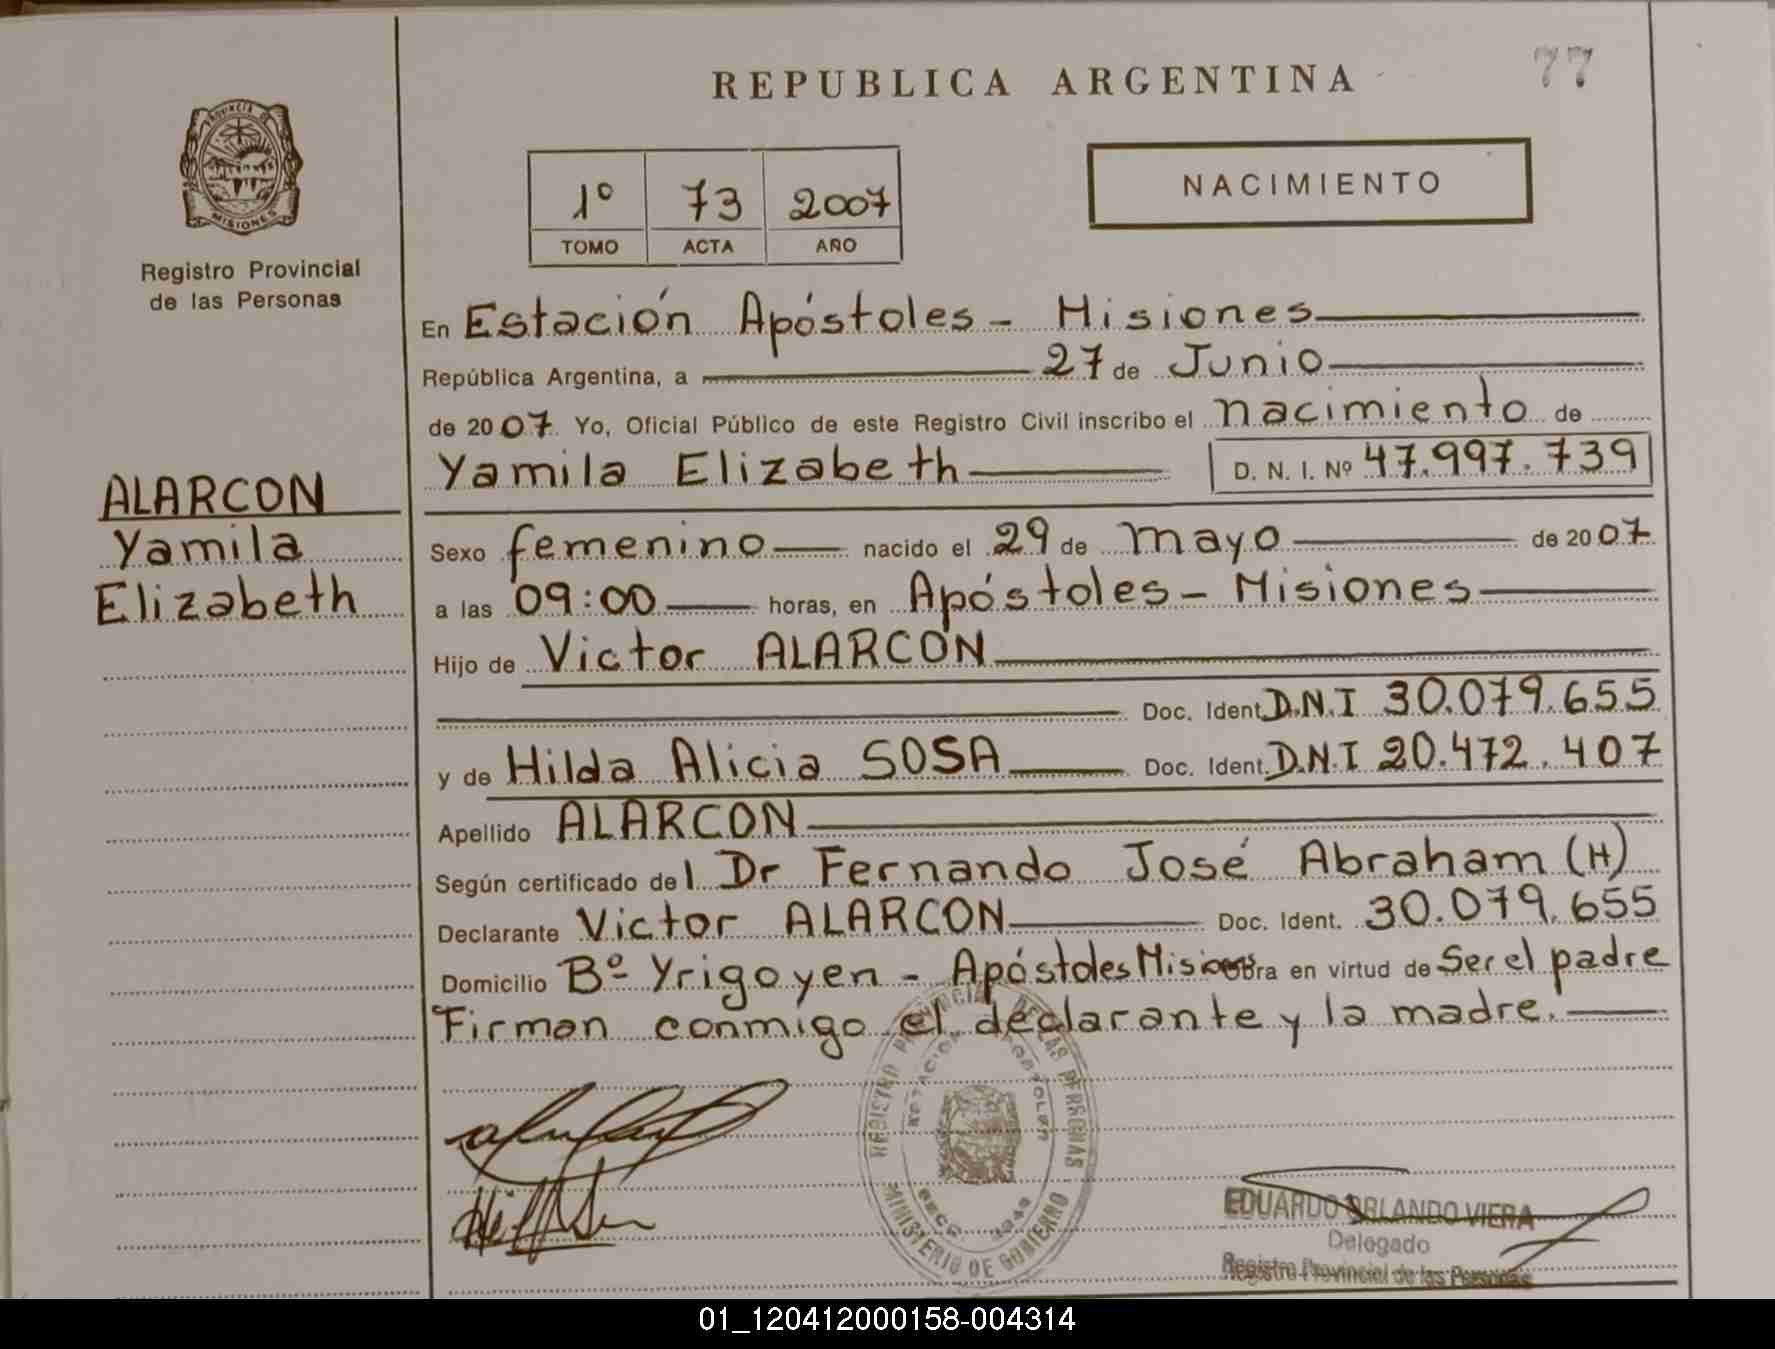 REPUBLICA ARGENTINA
77
PROVINCIA DE
MISIONES
Registro Provincial
de las Personas
1º 73 2007
TOMO ACTA AÑO
NACIMIENTO
En Estación Apóstoles - Misiones
República Argentina, a 27 de Junio
de 2007. Yo, Oficial Público de este Registro Civil inscribo el nacimiento de
Yamila Elizabeth D. N. I. Nº 47.997.739
ALARCON
Yamila
Elizabeth
Sexo femenino nacido el 29 de mayo de 2007
a las 09:00 horas, en Apóstoles - Misiones
Hijo de Victor ALARCON
Doc. Ident. D.N.I 30.079.655
y de Hilda Alicia SOSA Doc. Ident. D.N.I 20.472.407
Apellido ALARCON
Según certificado del Dr Fernando José Abraham (H)
Declarante Victor ALARCON Doc. Ident. 30.079.655
Domicilio Bº Yrigoyen - Apóstoles Misiones Obra en virtud de Ser el padre
Firman conmigo el declarante y la madre.
REGISTRO PROVINCIAL DE LAS PERSONAS
ESTACION APOSTOLES
MINISTERIO DE GOBIERNO
EDUARDO ORLANDO VIERA
Delegado
Registro Provincial de las Personas
01_120412000158-004314